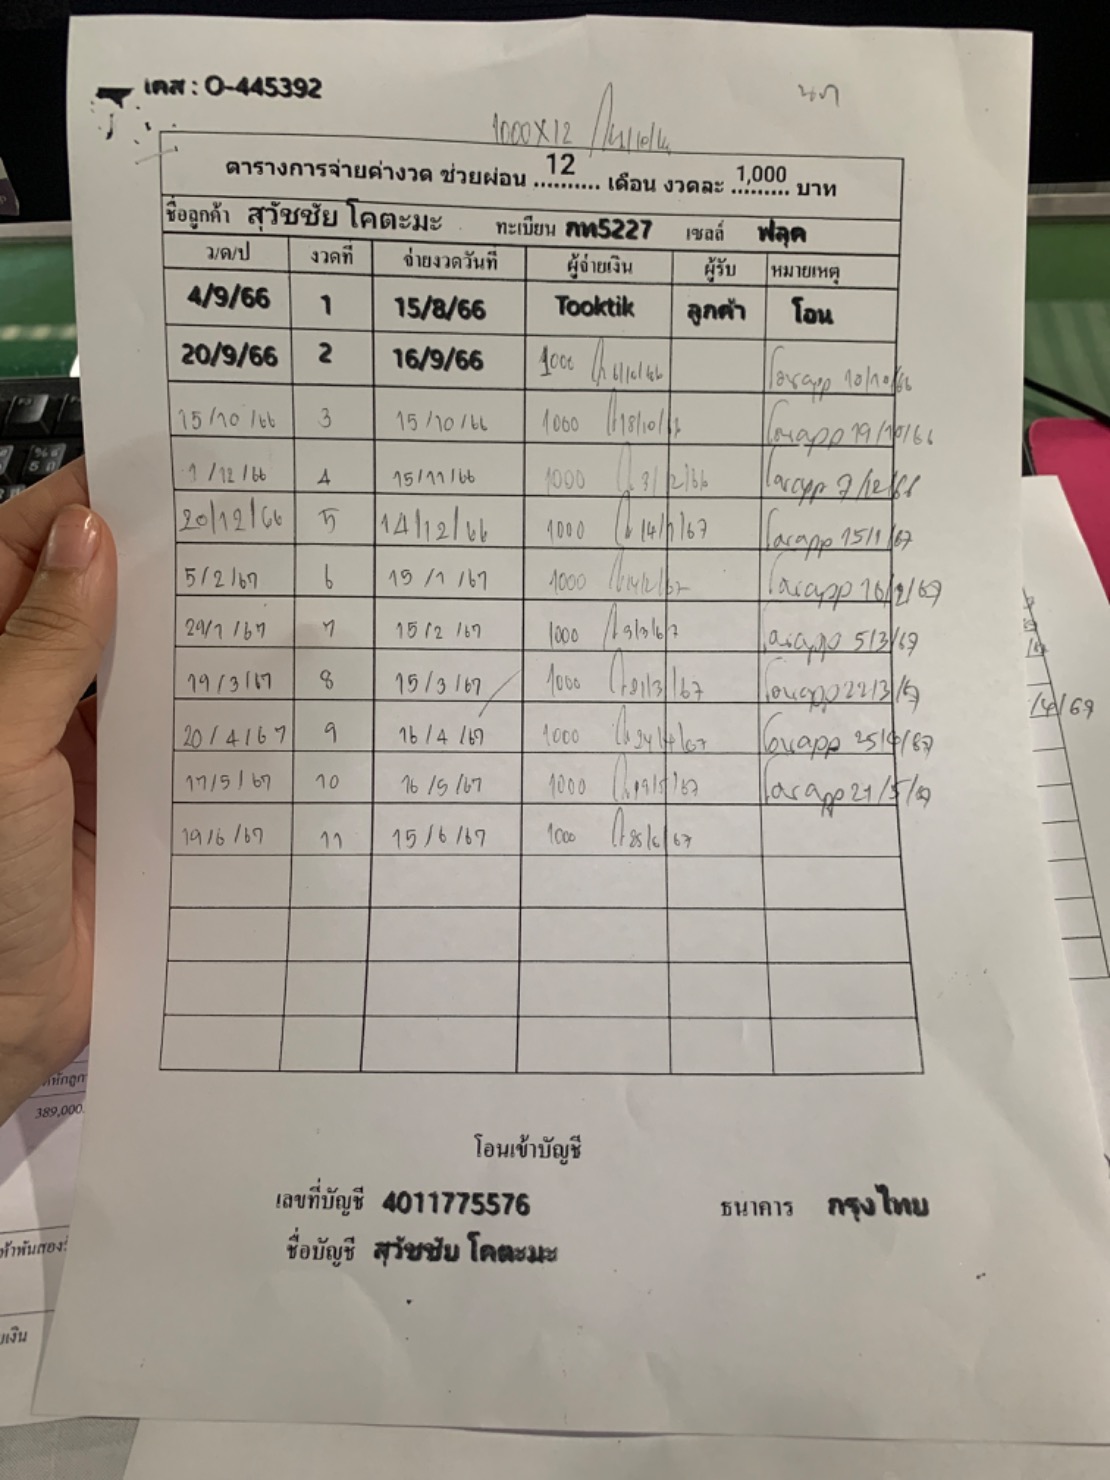 เคส : O-445392
1000 X 12
ตารางการจ่ายค่างวด ช่วยผ่อน 12 เดือน งวดละ 1,000 บาท
ชื่อลูกค้า สุวัชชัย โคตะมะ ทะเบียน กท5227 เซลล์ ฟลุค
ว/ด/ป งวดที่ จ่ายงวดวันที่ ผู้จ่ายเงิน ผู้รับ หมายเหตุ
4/9/66 1 15/8/66 Tooktik ลูกค้า โอน
20/9/66 2 16/9/66 1000 โอนapp 10/10/66
15/10/66 3 15/10/66 1000 18/10/66 โอนapp 19/10/66
1/12/66 4 15/11/66 1000 3/12/66 โอนapp 7/12/66
20/12/66 5 14/12/66 1000 14/1/67 โอนapp 15/1/67
5/2/67 6 15/1/67 1000 โอนapp 16/2/67
29/1/67 7 15/2/67 1000 3/3/67 โอนapp 5/3/67
19/3/67 8 15/3/67 1000 21/3/67 โอนapp 22/3/67
20/4/67 9 16/4/67 1000 24/4/67 โอนapp 25/4/67
17/5/67 10 16/5/67 1000 19/5/67 โอนapp 21/5/67
19/6/67 11 15/6/67 1000 25/6/67
โอนเข้าบัญชี
389,000
เลขที่บัญชี 4011775576 ธนาคาร กรุงไทย
ชื่อบัญชี สุวัชชัย โคตะมะ